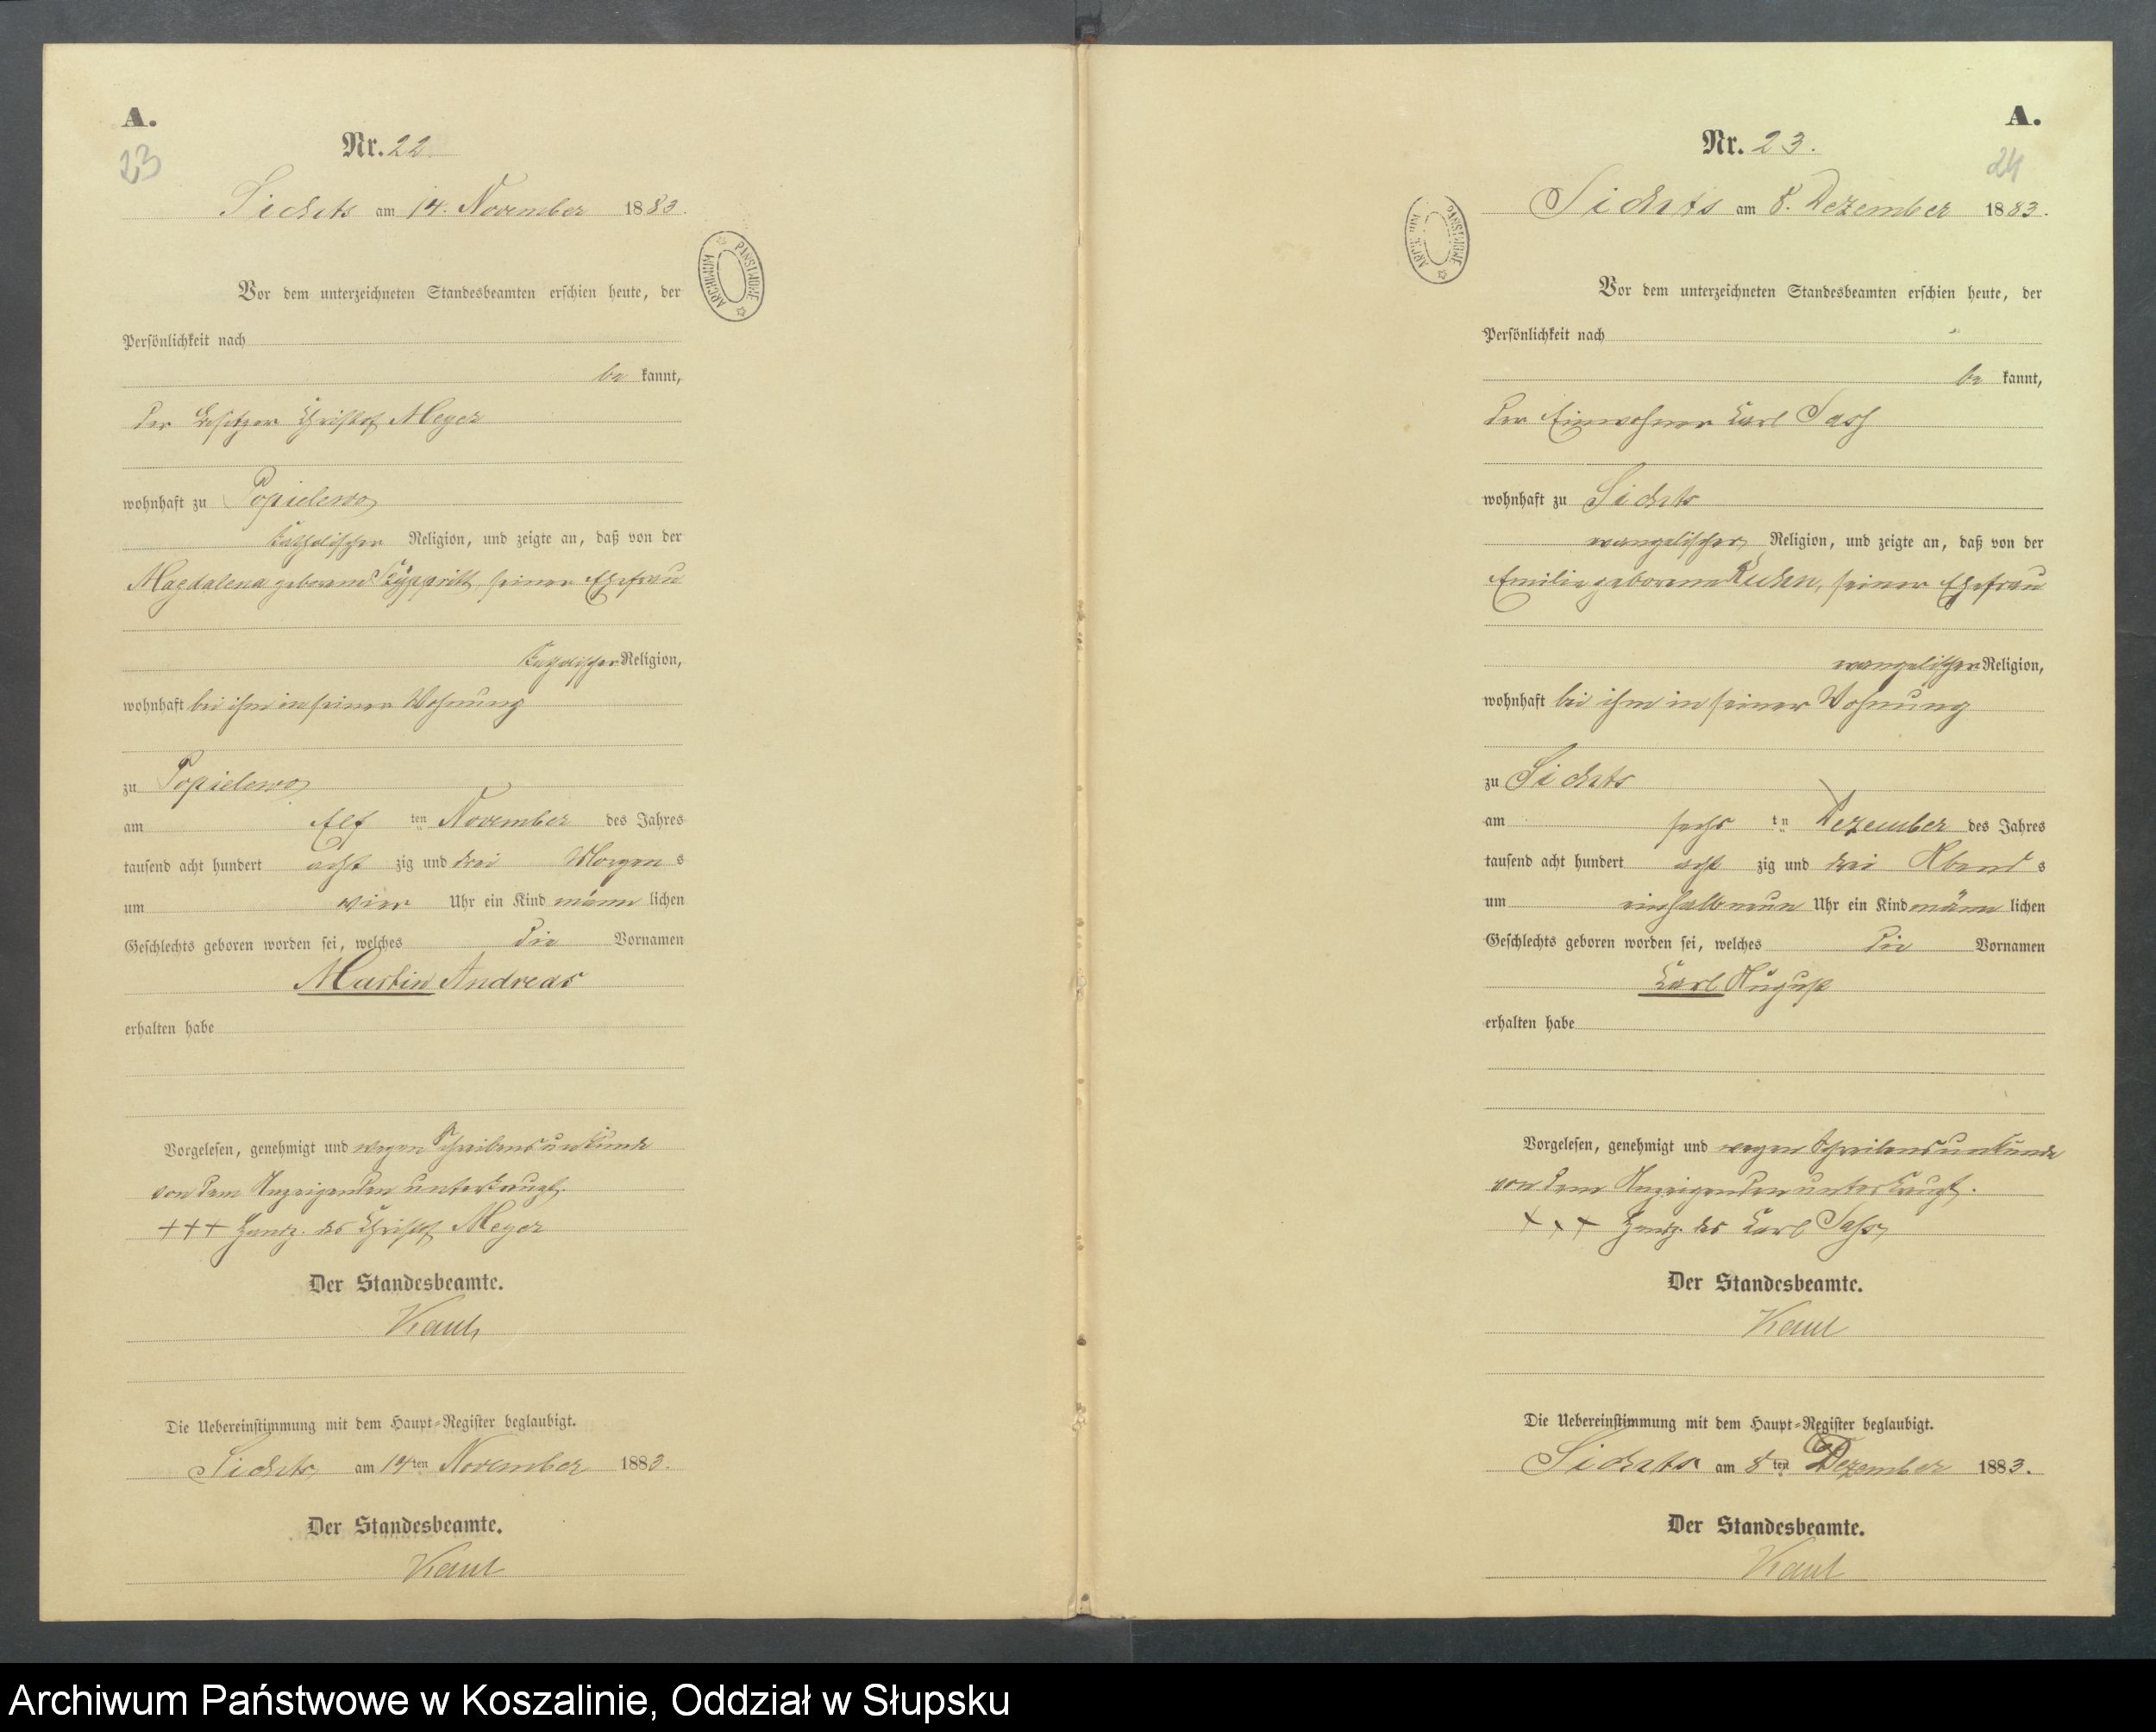 A.
23
Nr. 22
Sichts am 14. November 1883.
Vor dem unterzeichneten Standesbeamten erschien heute, der
Persönlichkeit nach
be kannt,
der Besitzer Christof Meyer
wohnhaft zu Popielewo
katholischer Religion, und zeigte an, daß von der
Magdalena geborene seiner Ehefrau
katholischer Religion,
wohnhaft bei ihm in seiner Wohnung
zu Popielewo
am Elf ten November des Jahres
tausend acht hundert acht zig und drei Morgen s
um vier Uhr ein Kind männ lichen
Geschlechts geboren worden sei, welches die Vornamen
Martin Andreas
erhalten habe
Vorgelesen, genehmigt und wegen Schreibensunkunde
von dem Anzeigenden unterkreuzt.
+++ Handz. des Christof Meyer
Der Standesbeamte.
Die Uebereinstimmung mit dem Haupt-Register beglaubigt.
am 14ten November 1883.
Der Standesbeamte.
ARCHIWUM PAŃSTWOWE
A.
24
Nr. 23.
am 8. Dezember 1883.
ARCHIWUM PAŃSTWOWE
Vor dem unterzeichneten Standesbeamten erschien heute, der
Persönlichkeit nach
be kannt,
der Einwohner Carl Sass
wohnhaft zu
evangelischer Religion, und zeigte an, daß von der
Emilie geborene seiner Ehefrau
evangelischer Religion,
wohnhaft bei ihm in seiner Wohnung
zu
am sechs tn Dezember des Jahres
tausend acht hundert acht zig und drei Abend s
um einhalbneun Uhr ein Kind männ lichen
Geschlechts geboren worden sei, welches die Vornamen
Carl August
erhalten habe
Vorgelesen, genehmigt und wegen Schreibensunkunde
von dem Anzeigenden unterkreuzt.
+++ Handz. des Carl Sass
Der Standesbeamte.
Die Uebereinstimmung mit dem Haupt-Register beglaubigt.
am 8ten Dezember 1883.
Der Standesbeamte.
Archiwum Państwowe w Koszalinie, Oddział w Słupsku